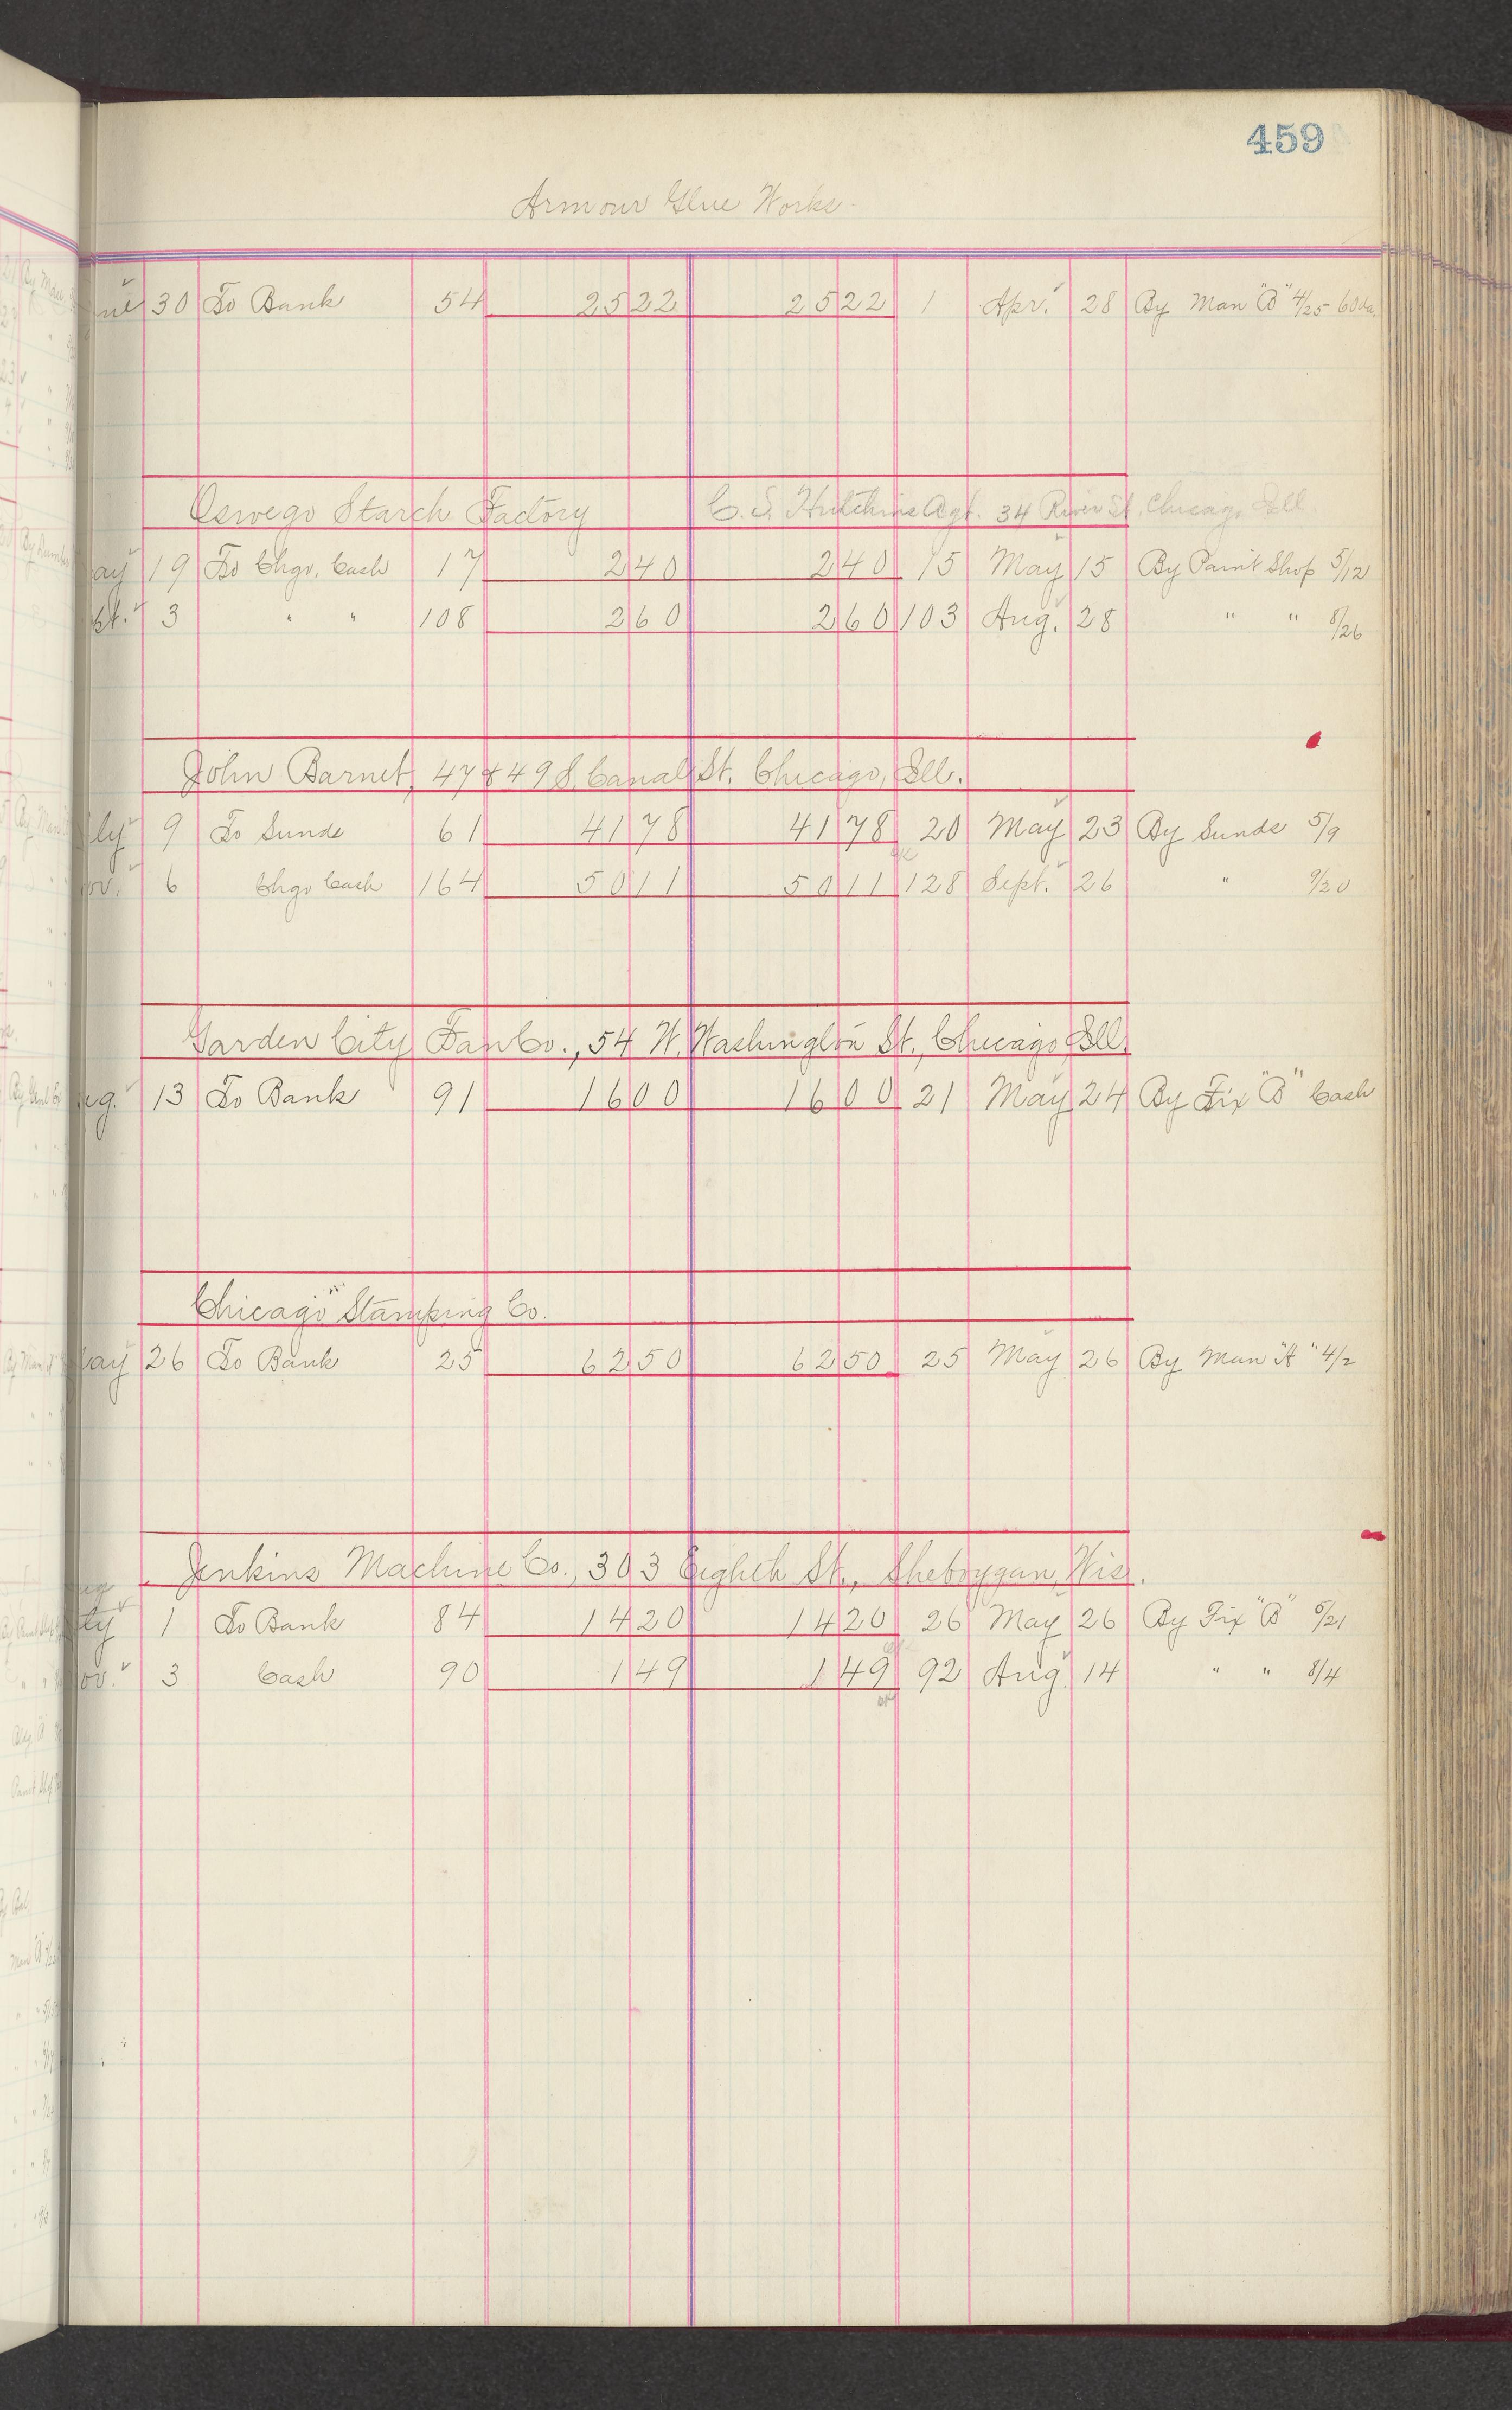 459
Armour Glue Works.
30 To Bank 54 25 22 25 22 1 Apr. 28 By Man "B" 4/25 60 da.
Oswego Starch Factory C. S. Hutchins Agt. 34 River St. Chicago Ill.
19 To Chgo. Cash 17 2 40 2 40 15 May 15 By Paint Shop 5/12
3 " " 108 2 60 2 60 103 Aug. 28 " " 8/26
John Barnet, 47 & 49 S. Canal St. Chicago, Ill.
9 To Sunds 61 41 78 41 78 20 May 23 By Sunds 5/9
6 Chgo Cash 164 50 11 50 11 128 Sept. 26 " 9/20
Garden City Fan Co., 54 W. Washington St., Chicago Ill.
13 To Bank 91 16 00 16 00 21 May 24 By Fix "B" Cash
Chicago Stamping Co.
26 To Bank 25 62 50 62 50 25 May 26 By Man "A" 4/2
Jenkins Machine Co., 303 Eighth St., Sheboygan, Wis.
1 To Bank 84 14 20 14 20 26 May 26 By Fix "B" 5/21
3 Cash 90 1 49 1 49 92 Aug. 14 " " 8/4